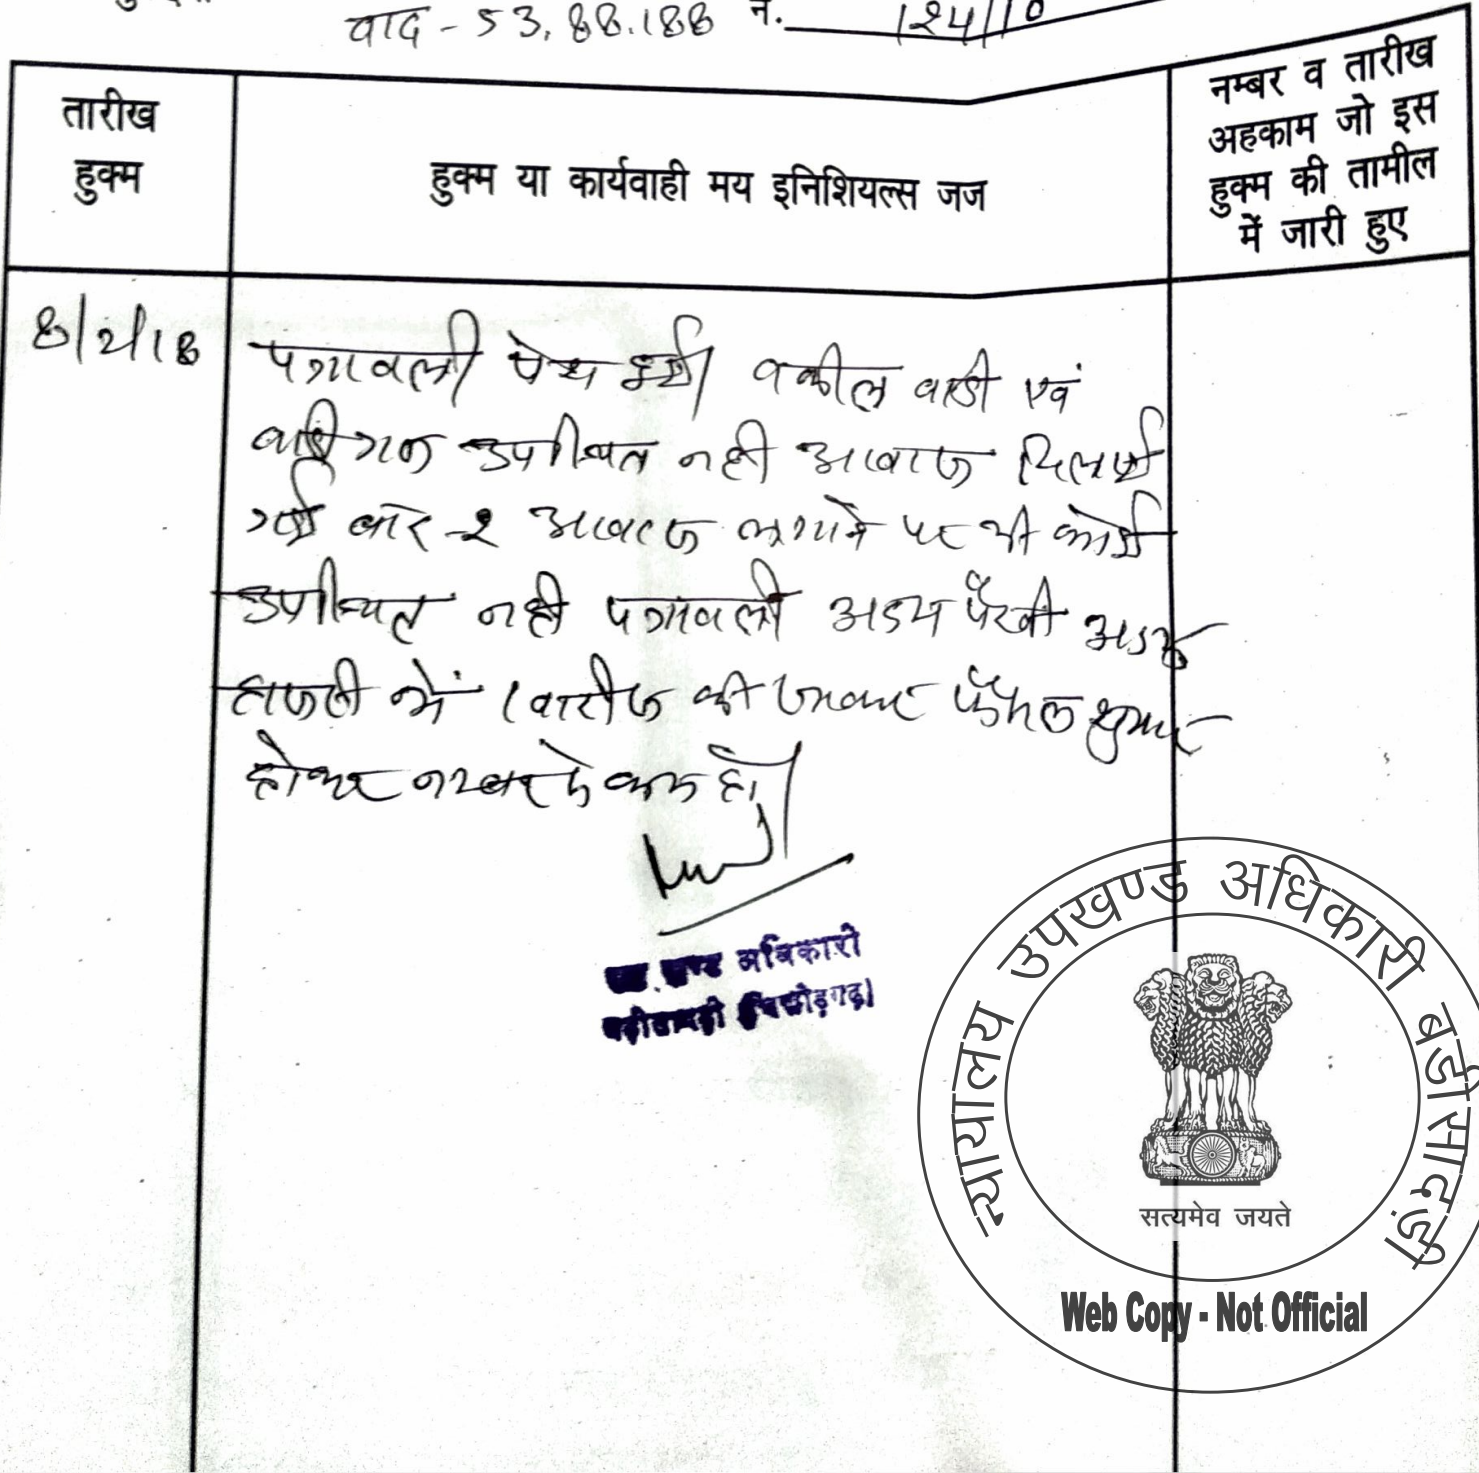 वाद - 53, 88.188 नं. 124/10
तारीख
हुक्म
हुक्म या कार्यवाही मय इनिशियल्स जज
नम्बर व तारीख
अहकाम जो इस
हुक्म की तामील
में जारी हुए
8/2/18
पत्रावली पेश हुई। वकील वादी एवं
वादीगण उपस्थित नही आवाज दिलाई
गई बार-२ आवाज लगाने पर भी कोई
उपस्थित नही पत्रावली अदम पैरवी अदम
हाजरी में खारीज की जाकर फैसल शुमार
होकर नम्बर से कम हो।
उप खण्ड अधिकारी
बड़ीसादड़ी (चित्तोड़गढ़)
न्यायालय उपखण्ड अधिकारी बडीसादड़ी
सत्यमेव जयते
Web Copy - Not Official